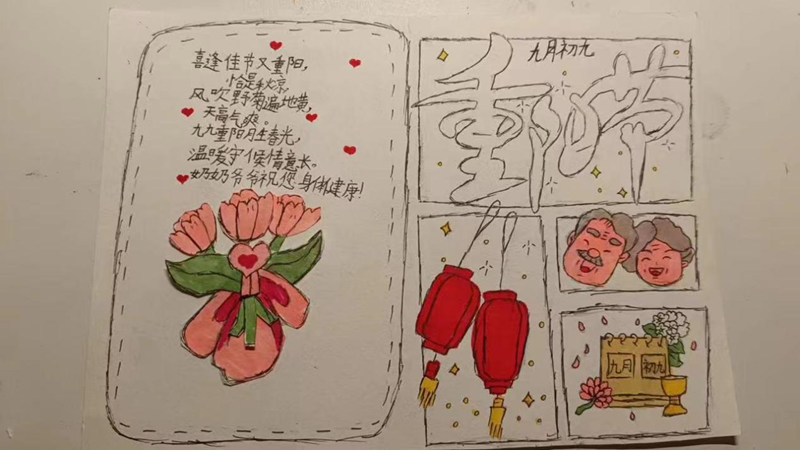 喜逢佳节又重阳，
恰是秋凉，
风吹野菊遍地黄，
天高气爽。
九九重阳胜春光，
温暖守候情意长。
奶奶爷爷祝您身体健康！
九月初九
重阳节
九月 初九